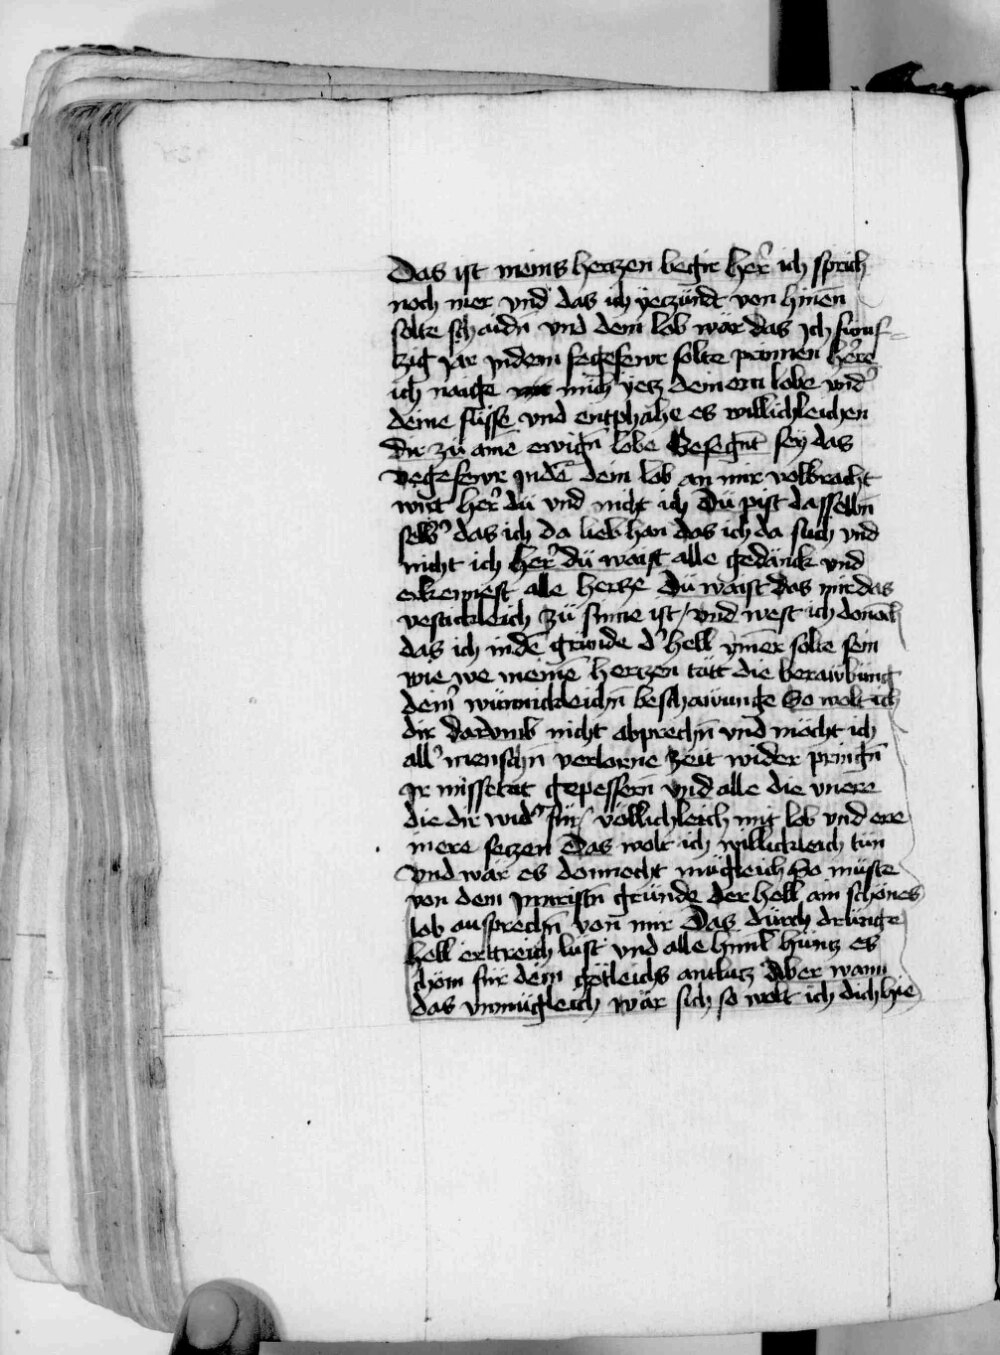 Das ist meins hertzen begir her̕ ich sprich
noch mer vnd das ich yeczündt von hinen̄
solte schaidn̄ vnd dem lob wär das Ich fünf-
tzig Jar Indem fegefewr solte prinnen her̕e
ich naige mich yetz deinem lobe vnd̕
deine füsse vnd entphahe es willichleichen
dir zü ainē ewign̄ lobe Gesegn̄t sey das
vegefewr Indē dein lob an mir volbracht
wirt her̕ dü vnd nicht ich Dü pist dasselbn̄
selb̕ das ich da lieb han das ich da such vnd
nicht ich her̕ dü waist alle gedänck vnd
erkennest alle hertze Dü waist das mir das
vestickleich zü sinne ist / vnd west ich donach
das ich indē gründe d̕ hell ym̄er solte sein
wie we meinē hertzen tätt die berawbüng
dein̕ wünnickleichn̄ beschawunge So wolt ich
dir darvmb nicht abprechn̄ vnd möcht ich
all̕ menschn̄ verlorne zeit wider pringn̄
Ir missetat gepessern̄ vnd alle die vnere
die dir wid̕ für / völlichleich mit lob vnd ere
mere seczen Das wolt ich willickleich tün
Vnd wär es dennocht mügleich So müste
von dem Inneristn̄ gründe der hell ain schönes
lob ausprechn̄ von mir Das dürch drünge
hell erttreich lüft vnd alle himl̄ hüntz es
chöm für dein götleichs antlütz Aber wann
das vnmügleich wär sich so wolt ich dich hie